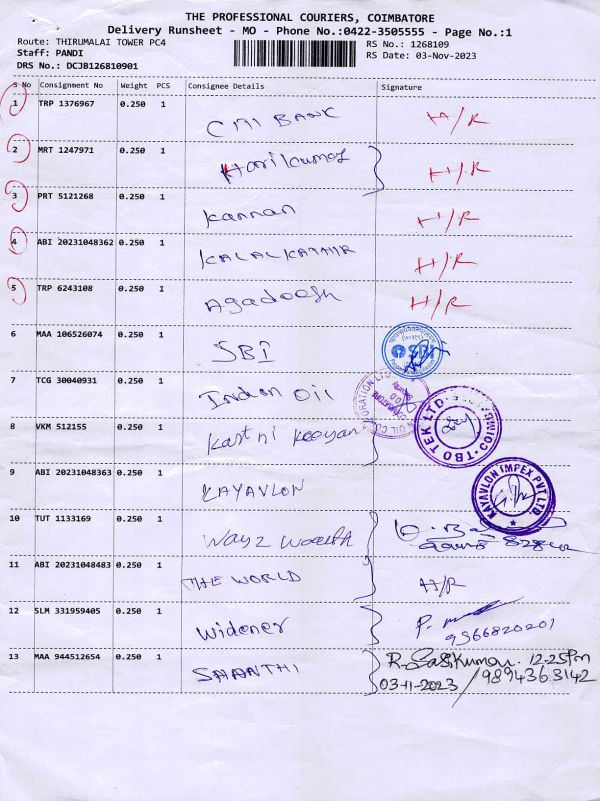 THE PROFESSIONAL COURIERS, COIMBATORE
Delivery Runsheet - MO - Phone No.:0422-3505555 - Page No.:1
Route: THIRUMALAI TOWER PC4
RS No.: 1268109
Staff: PANDI
RS Date: 03-Nov-2023
DRS No.: DCJB126810901
S No Consignment No Weight PCS Consignee Details Signature
1 TRP 1376967 0.250 1 CITI BANK H/R
2 MRT 1247971 0.250 1 Harikumar H/R
3 PRT 5121268 0.250 1 Kannan H/R
4 ABI 20231048362 0.250 1 KALALKATHIR H/R
5 TRP 6243108 0.250 1 Agadeesh H/R
6 MAA 106526074 0.250 1 SBI
SBI
7 TCG 30040931 0.250 1 Indian Oil
8 VKM 512155 0.250 1
TBO TEK LTD.
9 ABI 20231048363 0.250 1 KAYAVLON
KAYAVLON IMPEX PVT LTD.
10 TUT 1133169 0.250 1 Way2 Wealth
11 ABI 20231048483 0.250 1 THE WORLD H/R
12 SLM 331959405 0.250 1 Widener
9566820201
13 MAA 944512654 0.250 1 SHANTHI R. Sasikumar. 12-25Pm
03-11-2023 / 9894363142